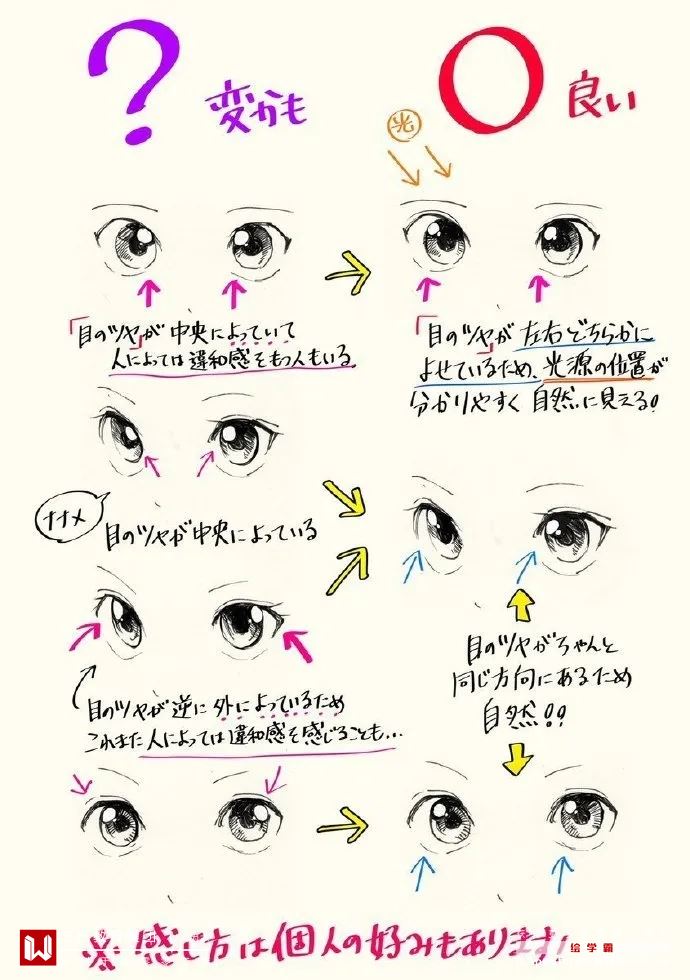 ?
変かも
○
良い
光
「目のツヤ」が 中央によっていて
人によっては違和感をもつ人もいる
「目のツヤ」が 左右どちらかに
よせているため、光源の位置が
分かりやすく 自然に見える!
ナナメ
目のツヤが中央によっている
目のツヤが逆に外によっているため
これまた人によっては違和感を感じることも...
目のツヤがちゃんと
同じ方向にあるため
自然!!
※感じ方は個人の好みもあります!
绘学霸